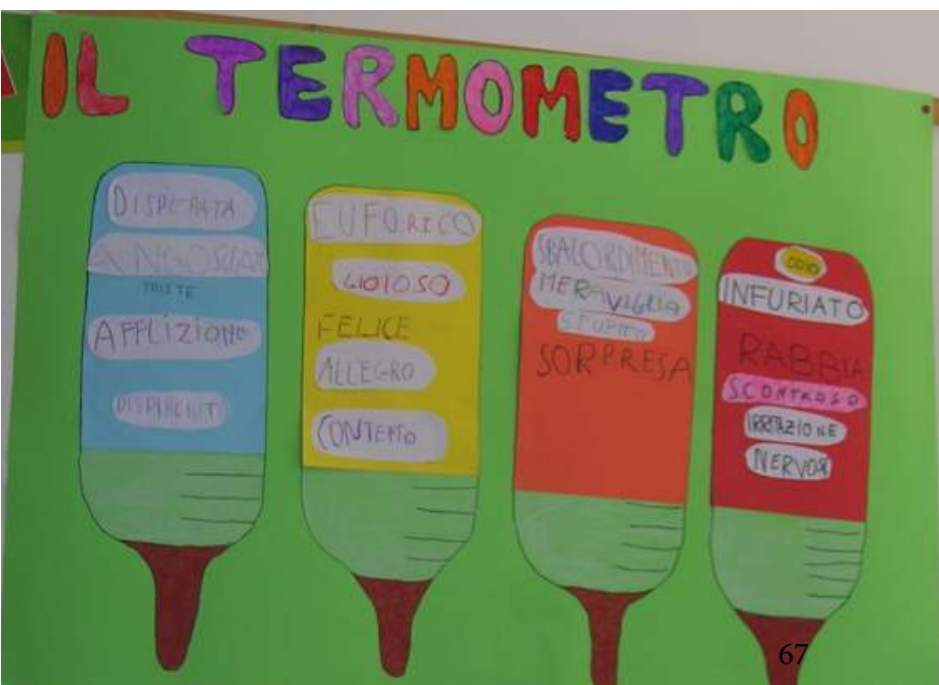 IL TERMOMETRO
DISPERATA
TRISTE
AFFLIZIONE
DISPIACIUTO
EUFORICO
GIOIOSO
FELICE
ALLEGRO
CONTENTO
SBALORDIMENTO
MERAVIGLIA
STUPITO
SORPRESA
ODIO
INFURIATO
RABBIA
SCONTROSO
IRRITAZIONE
67